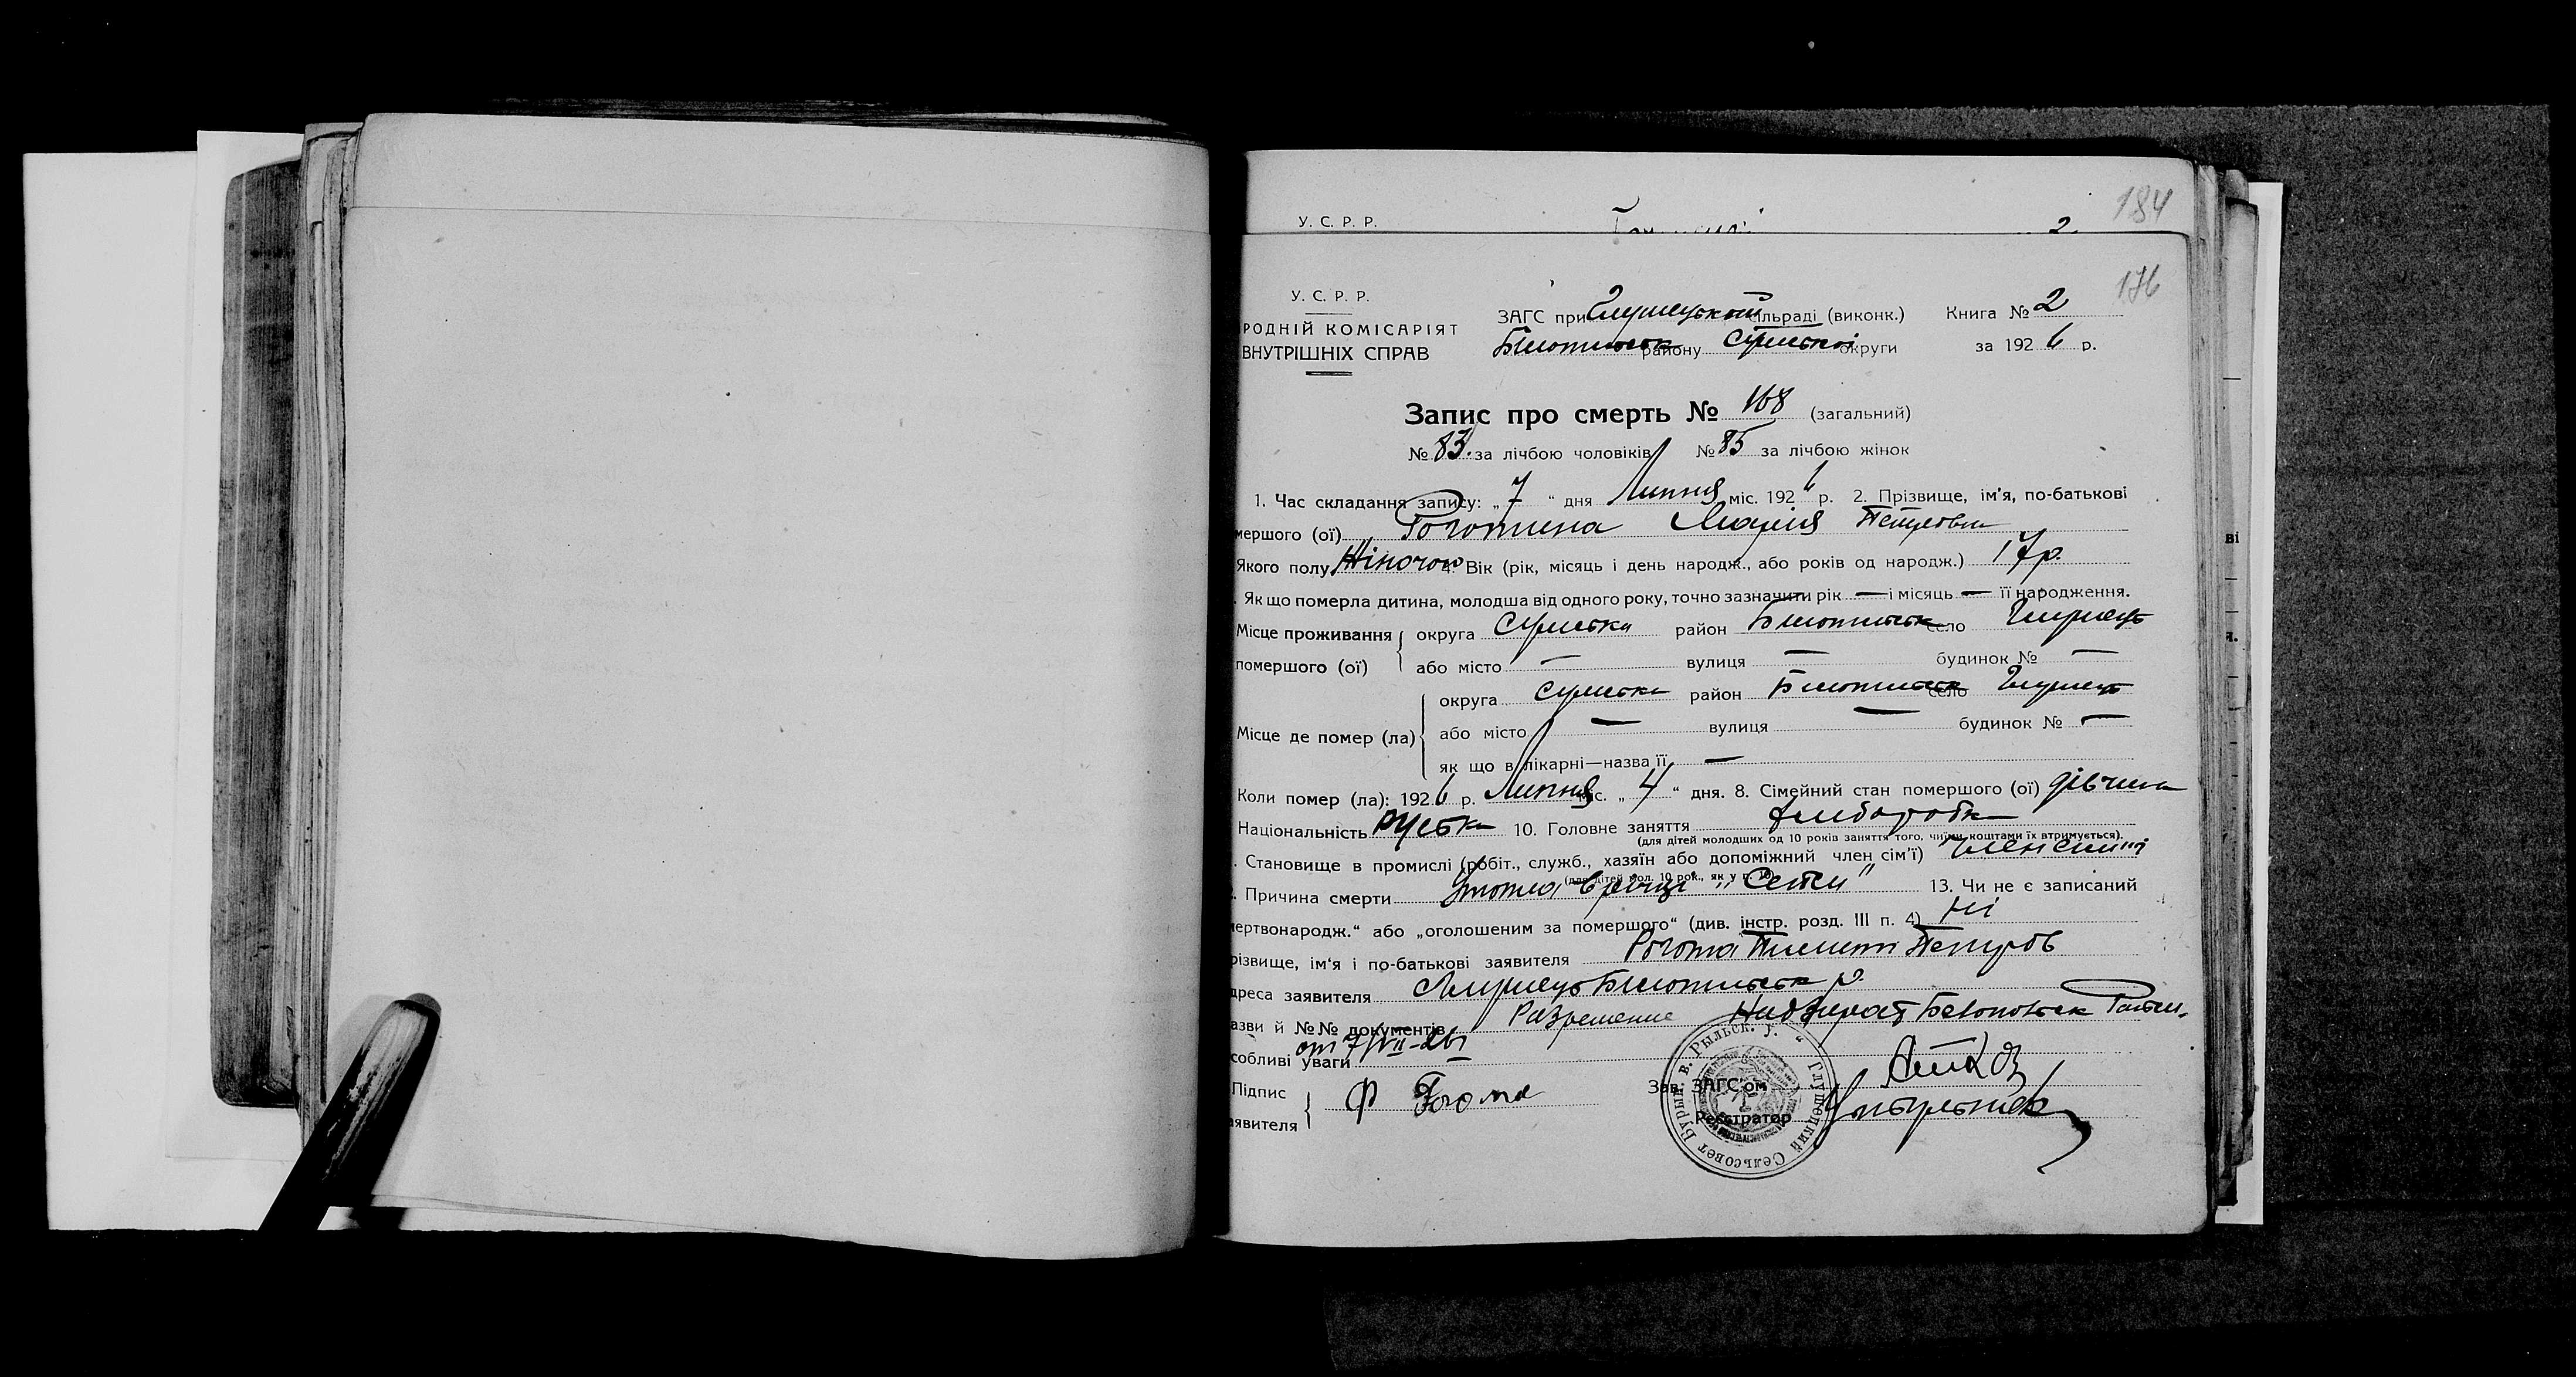 184
У. С. Р. Р.
2
176
У. С. Р. Р.
РОДНІЙ КОМІСАРІЯТ
ВНУТРІШНІХ СПРАВ
ЗАГС при Глушецькой сільраді (виконк.) Книга № 2
району Сумськоі округи за 1926 р.
Запис про смерть № 168 (загальний)
№ 83. за лічбою чоловіків № 85 за лічбою жінок
1. Час складання запису: „ 7 “ дня Липня міс. 1926 р. 2. Прізвище, ім’я, по-батькові
мершого (ої) Марія Петровна
Якого полу Жіночого 4. Вік (рік, місяць і день народж., або років од народж.) 17 р.
. Як що померла дитина, молодша від одного року, точно зазначити рік — і місяць — її народження.
Місце проживання помершого (ої) { округа Сумська район село Глушець
або місто — вулиця — будинок № —
Місце де помер (ла) { округа Сумська район село Глушець
або місто — вулиця — будинок № —
як що в лікарні—назва її —
Коли помер (ла): 1926 р. Липня міс. „ 4 “ дня. 8. Сімейний стан помершого (ої) дівчина
Національність руська 10. Головне заняття хлиборобка
(для дітей молодших од 10 років заняття того, чиїми коштами їх втримується).
. Становище в промислі (робіт., служб., хазяїн або допоміжний член сім’ї) член сим'ї
(для дітей мол. 10 рок., як у п. 10)
2. Причина смерти утопла в річці „Сейм“ 13. Чи не є записаний
мертвонародж.“ або „оголошеним за помершого“ (див. інстр. розд. III п. 4) Ні
різвище, ім’я і по-батькові заявителя Петров
дреса заявителя Глушець р.
азви й №№ документів Разрешение
собливі уваги от 7/VII-26 г
Підпис
аявителя } Ф
Зав. ЗАГС’ом
Реєстратор
Глушецкий Сельсовет Бурын. в. Рыльск. у.
ві
я.